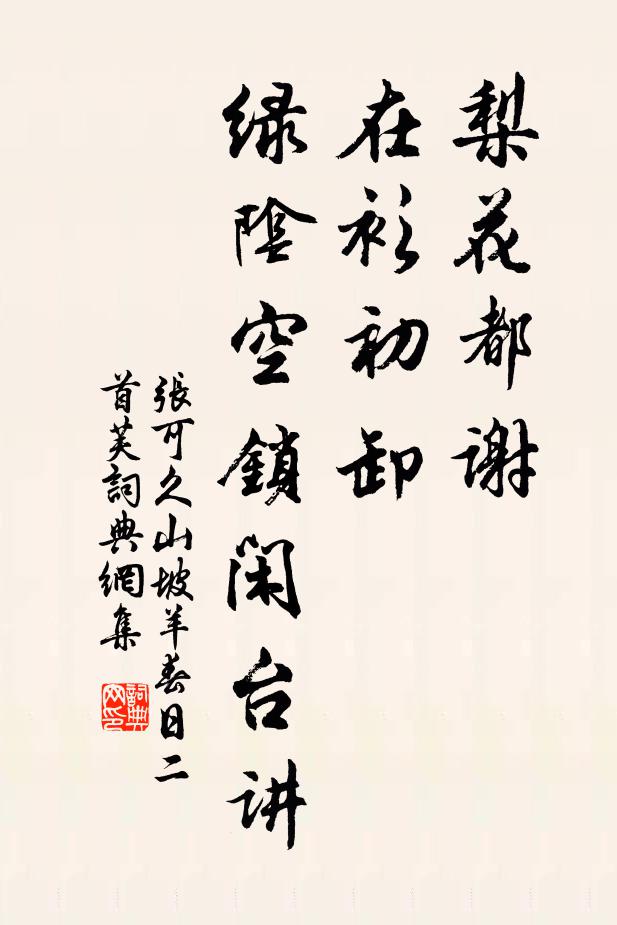 梨花都谢
在衫初卸
绿陰空鎖闲台讲
張可久山坡羊春日二
首芙詞典網集
詞典
网印